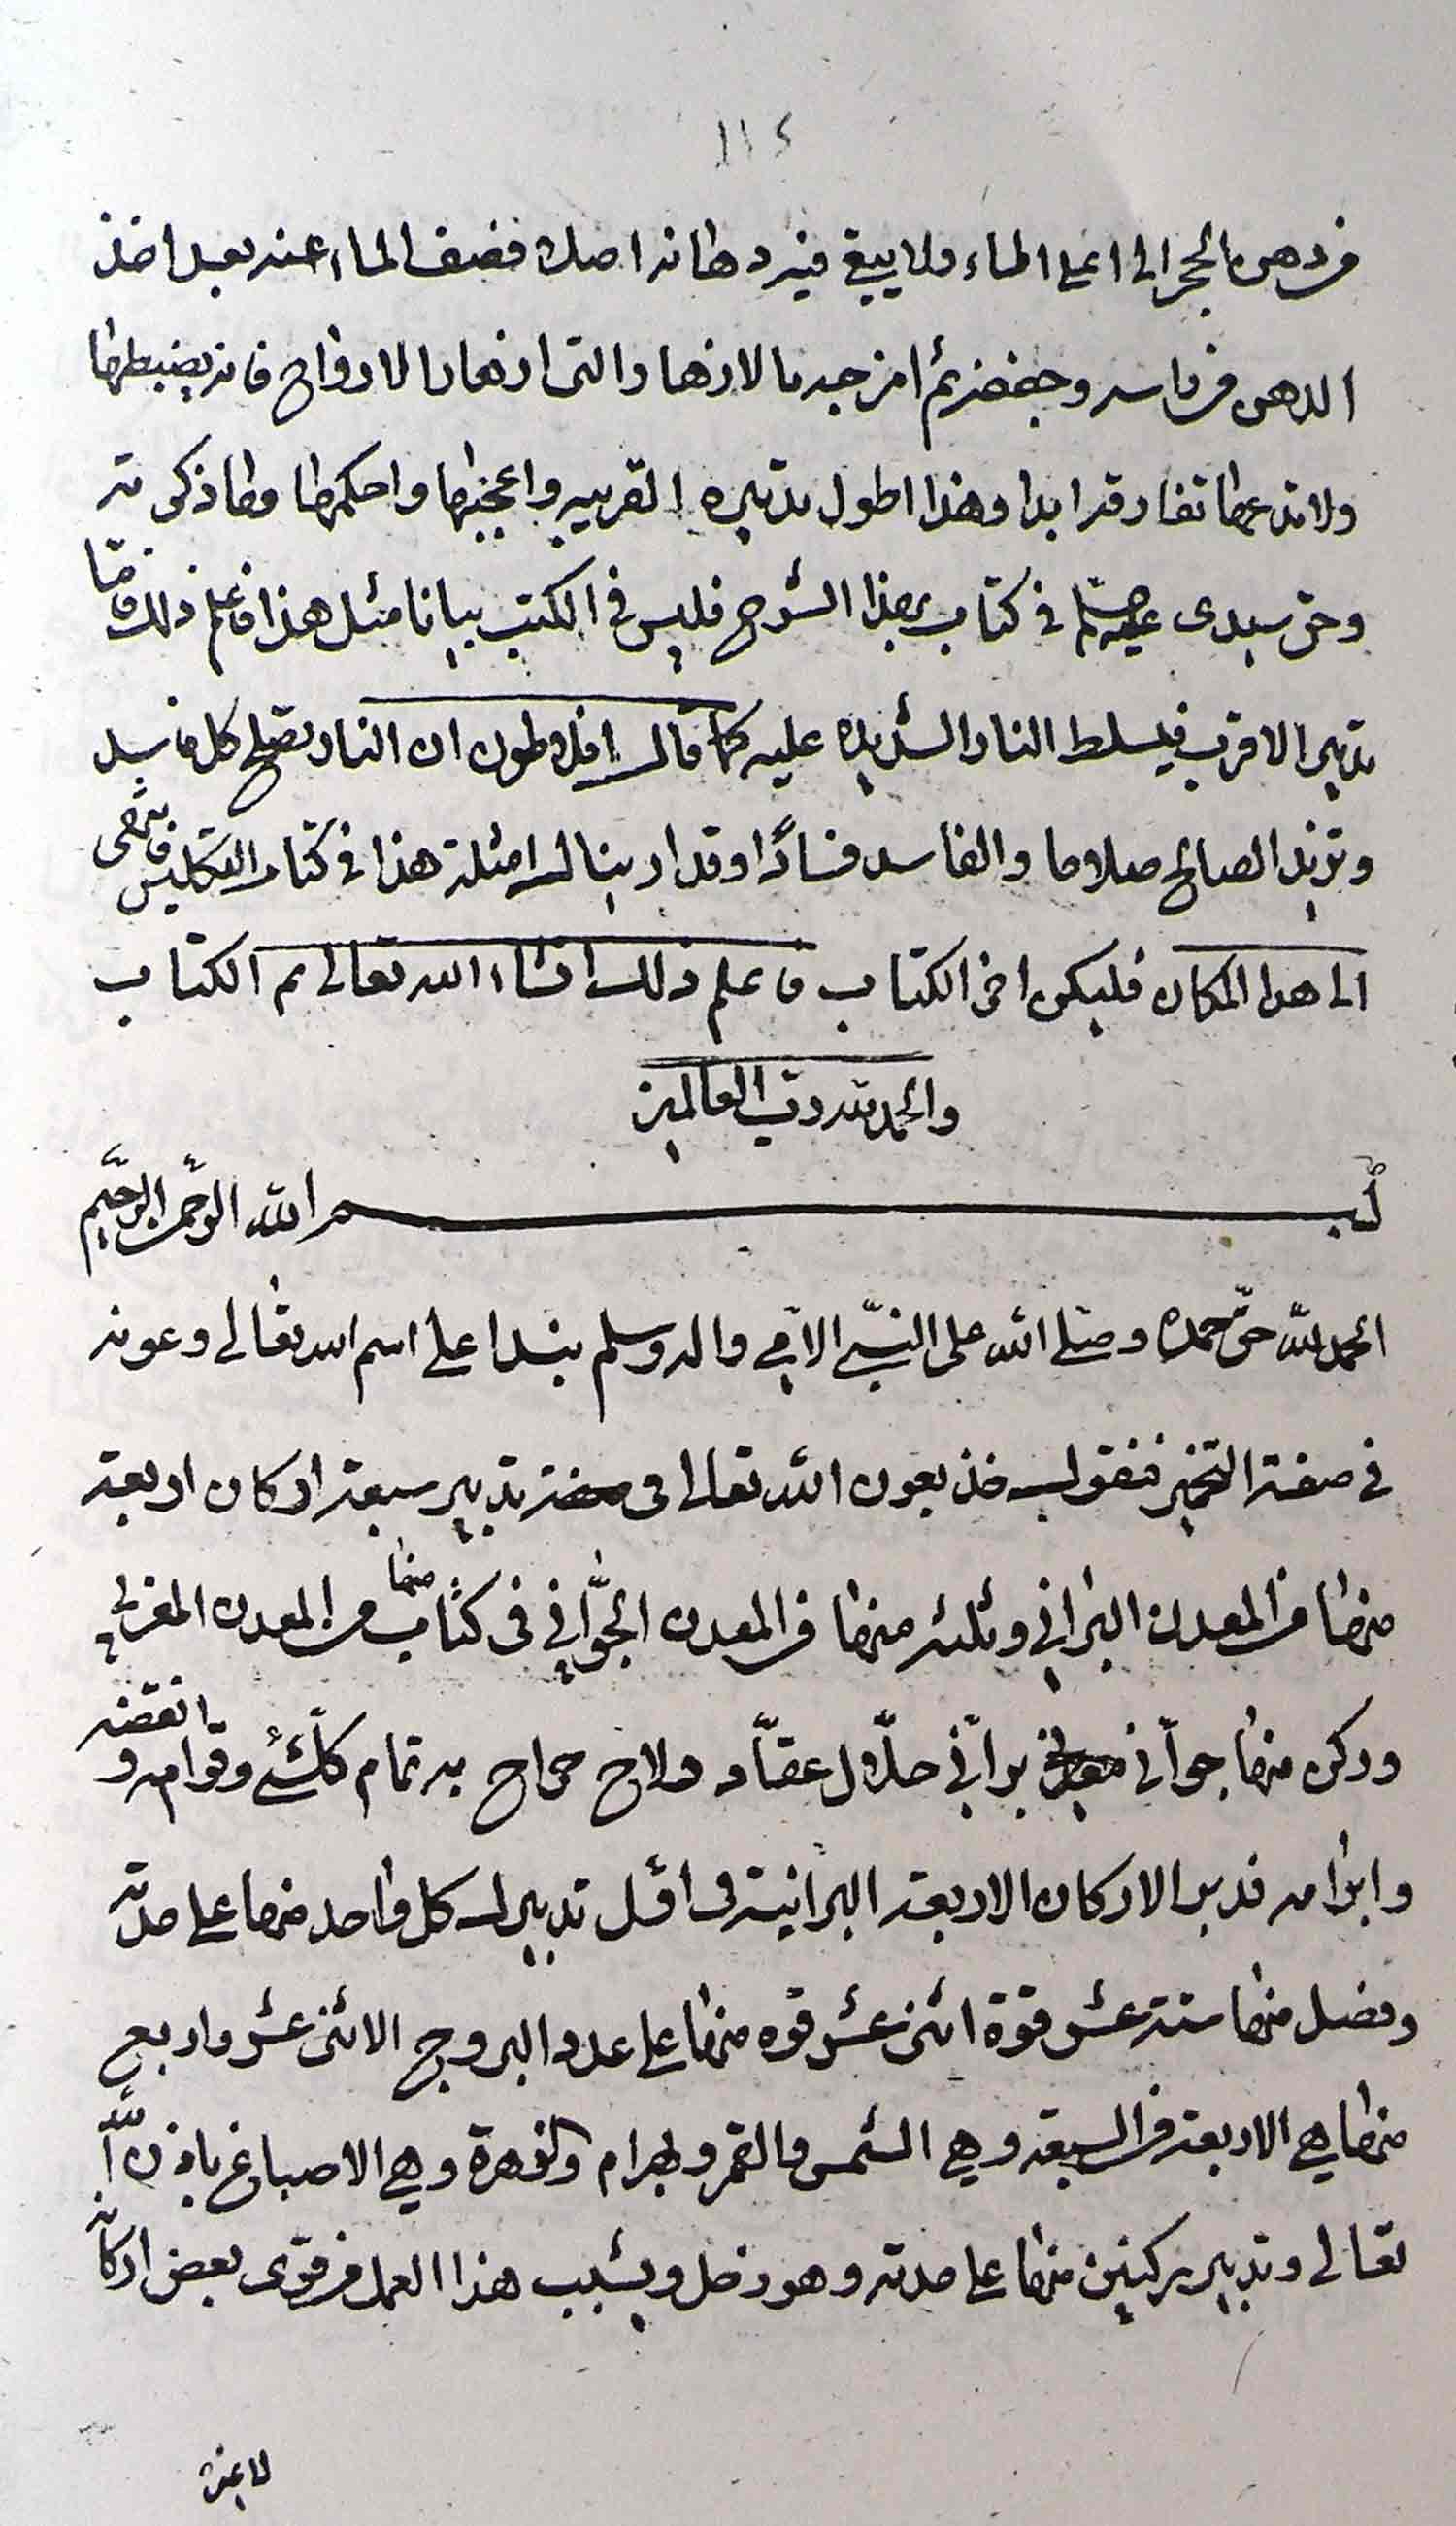 ١١٤
من دهن الحجر الى اعلى الماء ولا يبقى فيه دهانه اصلا فصف الماء عنه بعد اخذ
الدهن من راسه وجففه ثم امزجه بالازهار التى ازهار الارواح فانه يضبطها
ولا تدعها تفارقه ابدا وهذا اطول تدبيره القريبه واعجبها واحكمها وما ذكرته
وحق سيدى صلعم فى كتاب بهذا الشرح فليس فى الكتب بيانا مثل هذا فاعلم ذلك فامّا
تدبير الاقرب فيسلط النار الشديدة عليه كما قال افلاطون ان النار تصلح كل فاسد
وتزيد الصالح صلاحا والفاسد فسادًا وقد ارينا له امثلة هذا فى كتاب التكليس
الى هذا المكان فليكن اخر الكتاب فاعلم ذلك انشاء الله تعالى تم الكتاب
والحمد لله رب العالمين
بسم الله الرحمن الرحيم
الحمد لله حقّ حمده وصلى الله على النبىّ الامّي واله وسلم نبدا على اسم الله تعالى وعونه
فى صفة التخمير فنقول خذ بعون الله تعالى فى تدبير سبعة اركان اربعة
منها من المعدن البراني وثلثه منها من المعدن الجوّاني فى كتاب منها من المعدن المغربي
وركن منها جوّاني برّاني حلّال عقّاد ولاج خراج به تمام كلّ شئ وقوامه و انقضه
وابرامه فدبر الاركان الاربعة البرانية فى اوّل تدبير كل واحد منها على حدته
وفصل منها ستة عشر قوة اثنى عشر قوه منها على عدد البروج الاثنى عشر واربع
منها هي الاربعة من السبعة وهي الشمس والقمر وبهرام والزهرة وهي الاصباغ باذن الله
تعالى وتدبير ركنين منها على حدته وهو زحل وبسبب هذا العمل من قوى بعض اركانه